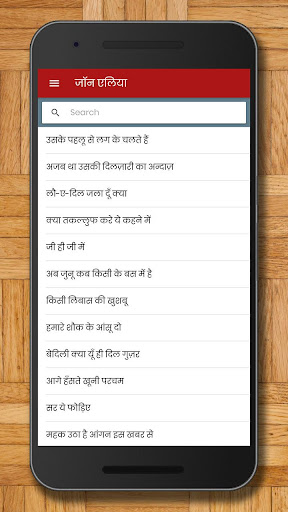 जॉन एलिया
Search
उसके पहलू से लग के चलते हैं
अजब था उसकी दिलज़ारी का अन्दाज़
लौ-ए-दिल जला दूँ क्या
क्या तकल्लुफ करे ये कहने में
जी ही जी में
अब जुनू कब किसी के बस में है
किसी लिबास की खुशबू
हमारे शौक के आंसू दो
बेदिली क्या यूँ ही दिल गुज़र
आगे हँसते खूनी परचम
सर ये फोड़िए
महक उठा है आंगन इस खबर से